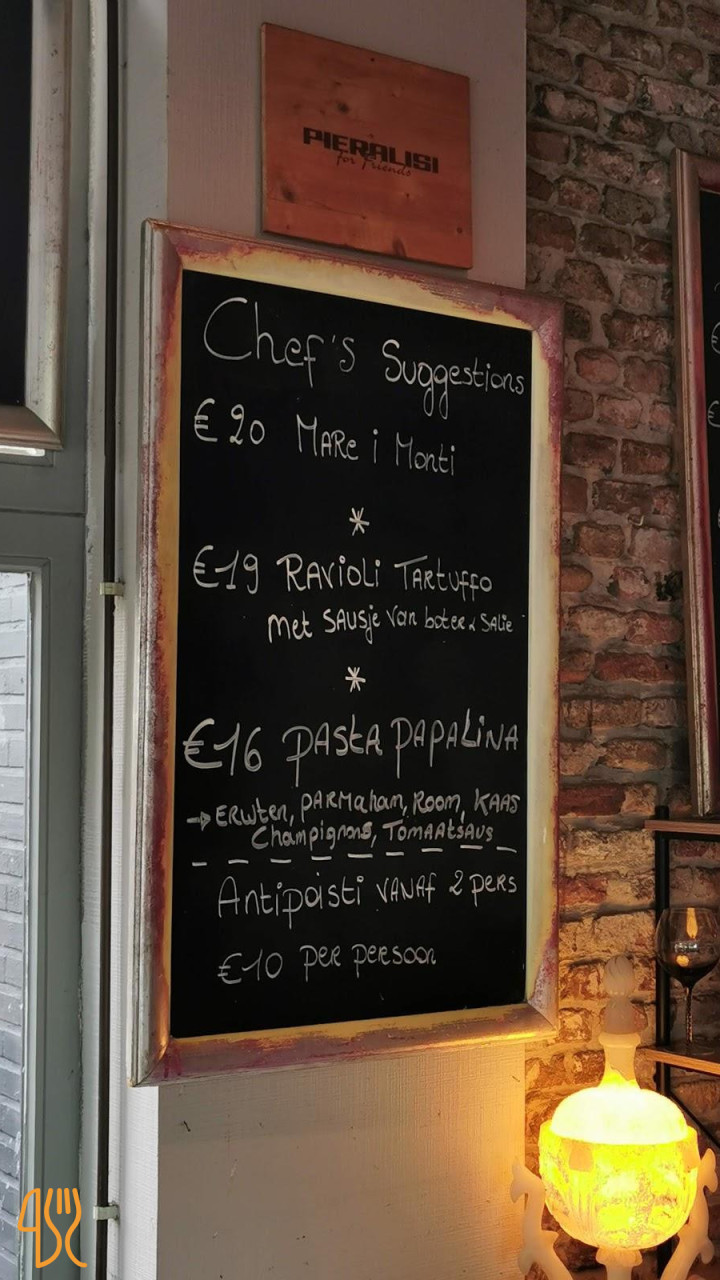 PIERALISI
for friends
Chef's Suggestions
€20 MARe i Monti
*
€19 RAVioLi TARTuffo
Met SAUSje van boter & SALie
*
€16 PASTA PAPALiNA
→ ERWten, PARMAham, Room, KAAS
Champignons, TOMAATSAUS
Antipasti VANAf 2 pers
€10 per persoon